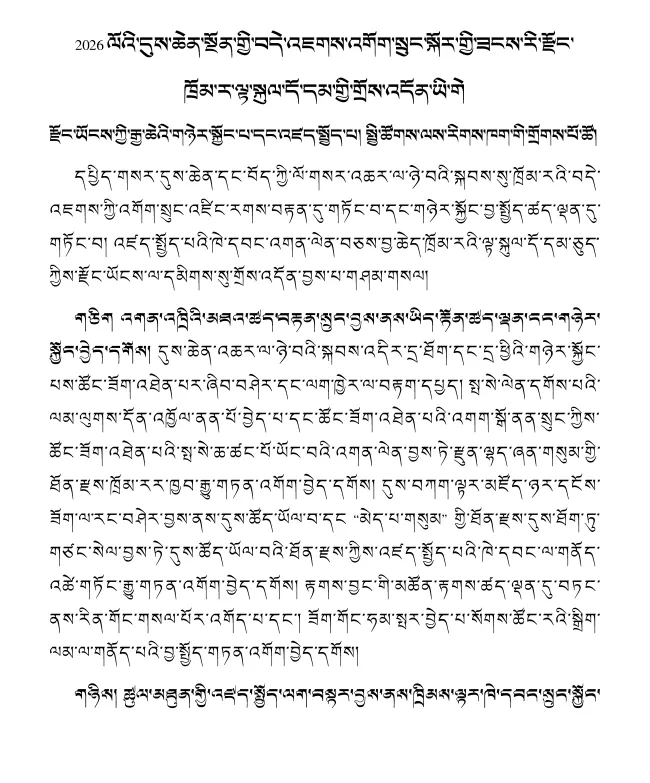 2026 ལོའི་དུས་ཆེན་སྔོན་གྱི་བདེ་འཇགས་འགོག་སྲུང་སྐོར་གྱི་ཟངས་རི་རྫོང་
ཁྲོམ་ར་ལྟ་སྐུལ་དོ་དམ་གྱི་གྲོས་འདོན་ཡི་གེ
རྫོང་ཡོངས་ཀྱི་རྒྱ་ཆེའི་གཉེར་སྐྱོང་པ་དང་འཛད་སྤྱོད་པ། སྤྱི་ཚོགས་ལས་རིགས་ཁག་གི་གྲོགས་པོ་ཚོ།
དཔྱིད་གསར་དུས་ཆེན་དང་བོད་ཀྱི་ལོ་གསར་འཆར་ལ་ཉེ་བའི་སྐབས་སུ་ཁྲོམ་རའི་བདེ་
འཇགས་ཀྱི་འགོག་སྲུང་འཛིང་རགས་བརྟན་དུ་གཏོང་བ་དང་གཉེར་སྐྱོང་བྱ་སྤྱོད་ཚད་ལྡན་དུ་
གཏོང་བ། འཛད་སྤྱོད་པའི་ཁེ་དབང་འགན་ལེན་བཅས་བྱ་ཆེད་ཁྲོམ་རའི་ལྟ་སྐུལ་དོ་དམ་ཅུད་
ཀྱིས་རྫོང་ཡོངས་ལ་དམིགས་སུ་གྲོས་འདོན་བྱས་པ་གཤམ་གསལ།
གཅིག འགན་འཁྲིའི་མཐའ་ཚད་བརྟན་སྲུང་བྱས་ནས་ཡིད་རྟོན་ཚད་ལྡན་དང་གཉེར་
སྐྱོང་བྱེད་དགོས། དུས་ཆེན་འཆར་ལ་ཉེ་བའི་སྐབས་འདིར་དྲ་ཐོག་དང་དྲ་ཕྱིའི་གཉེར་སྐྱོང་
པས་ཚོང་ཟོག་འཐེན་པར་ཞིབ་བཤེར་དང་ལག་ཁྱེར་ལ་བརྟག་དཔྱད། སྤ་སེ་ལེན་དགོས་པའི་
ལམ་ལུགས་དོན་འཁྱོལ་ནན་པོ་བྱེད་པ་དང་ཚོང་ཟོག་འཐེན་པའི་འགག་སྒོ་ནན་སྲུང་ཀྱིས་
ཚོང་ཟོག་འཐེན་པའི་སྤ་སེ་ཆ་ཚང་པོ་ཡོང་བའི་འགན་ལེན་བྱས་ཏེ་རྫུན་ལྷད་ཞན་གསུམ་གྱི་
ཐོན་རྫས་ཁྲོམ་རར་ཁྱབ་རྒྱུ་གཏན་འགོག་བྱེད་དགོས། དུས་བཀག་ལྟར་མཛོད་ཉར་དངོས་
ཟོག་ལ་རང་བཤེར་བྱས་ནས་དུས་ཚོད་ཡོལ་བ་དང་ “མེད་པ་གསུམ” གྱི་ཐོན་རྫས་དུས་ཐོག་ཏུ་
གཙང་སེལ་བྱས་ཏེ་དུས་ཚོད་ཡོལ་བའི་ཐོན་རྫས་ཀྱིས་འཛད་སྤྱོད་པའི་ཁེ་དབང་ལ་གནོད་
འཚེ་གཏོང་རྒྱུ་གཏན་འགོག་བྱེད་དགོས། རྟགས་བྱང་གི་མཚོན་རྟགས་ཚད་ལྡན་དུ་བཏང་
ནས་རིན་གོང་གསལ་པོར་འགོད་པ་དང་། ཟོག་གོང་ཧམ་སྤར་བྱེད་པ་སོགས་ཚོང་རའི་སྒྲིག་
ལམ་ལ་གནོད་པའི་བྱ་སྤྱོད་གཏན་འགོག་བྱེད་དགོས།
གཉིས། ཚུལ་མཐུན་གྱི་འཛད་སྤྱོད་ལག་བསྟར་བྱས་ནས་ཁྲིམས་ལྟར་ཁེ་དབང་སྲུང་སྐྱོང་